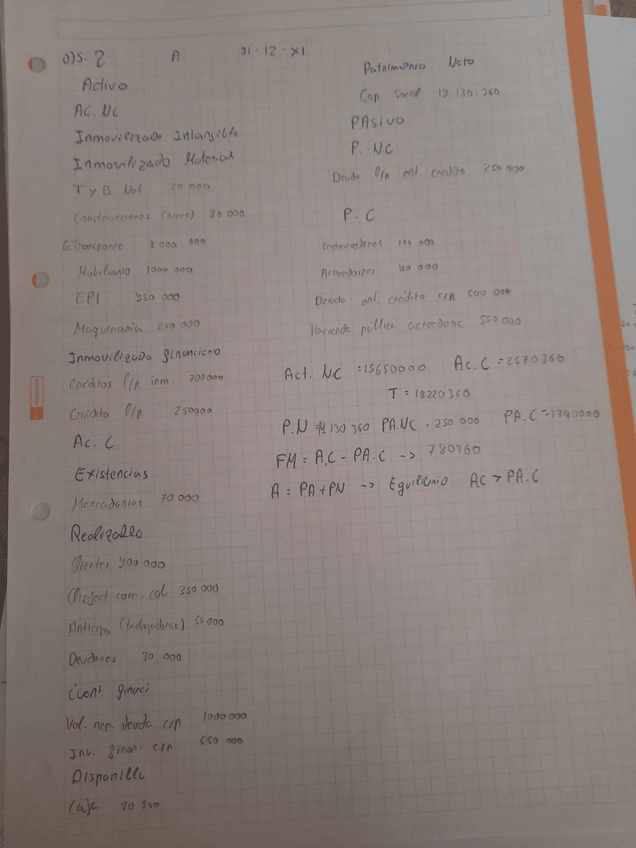 A 31 - 12 - X1
Activo
AC. NC
Inmovilizado Intangible
Inmovilizado Material
T y B Nat 20 000
Construcciones (Nave) 80 000
E. Transporte 000
Mobiliario 1000 000
EPI 950 000
Maquinaria 250 000
Inmovilizado financiero
Créditos l/p inm 700000
Crédito l/p 250000
Ac. C
Existencias
Mercaderías 70 000
Realizable
Clientes 400 000
com. col 350 000
Anticipo (trabajadores) 50 000
Deudores 30 000
Cuent. financi
Val. deuda c/p 1000000
Inv. finan. c/p 650 000
Disponible
Caja 20 360
Patrimonio Neto
Cap Social 130.360
PASIVO
P. NC
Deuda l/p ent credito 250 000
P. C
Proveedores 000
Acreedores 000
Deuda ent. crédito c/p 500 000
Hacienda pública acreedora 550 000
Act. NC = 15650000 Ac. C = 2570360
T = 18220360
P.N = 130 360 PA.NC = 250 000 PA.C = 1790000
FM = A.C - PA.C -> 780360
A = PA + PN -> Equilibrio AC > PA.C